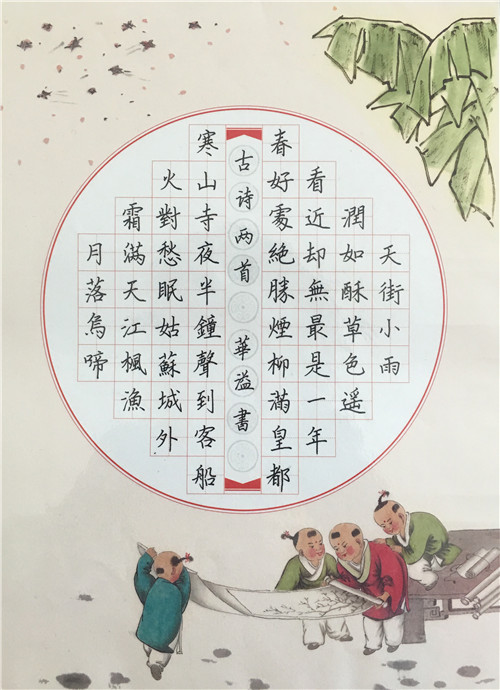 天街小雨
潤如酥草色遥
看近却無最是一年
春好處絶勝煙柳滿皇都
古诗两首 華溢書
月落烏啼
霜滿天江楓漁
火對愁眠姑蘇城外
寒山寺夜半鐘聲到客船